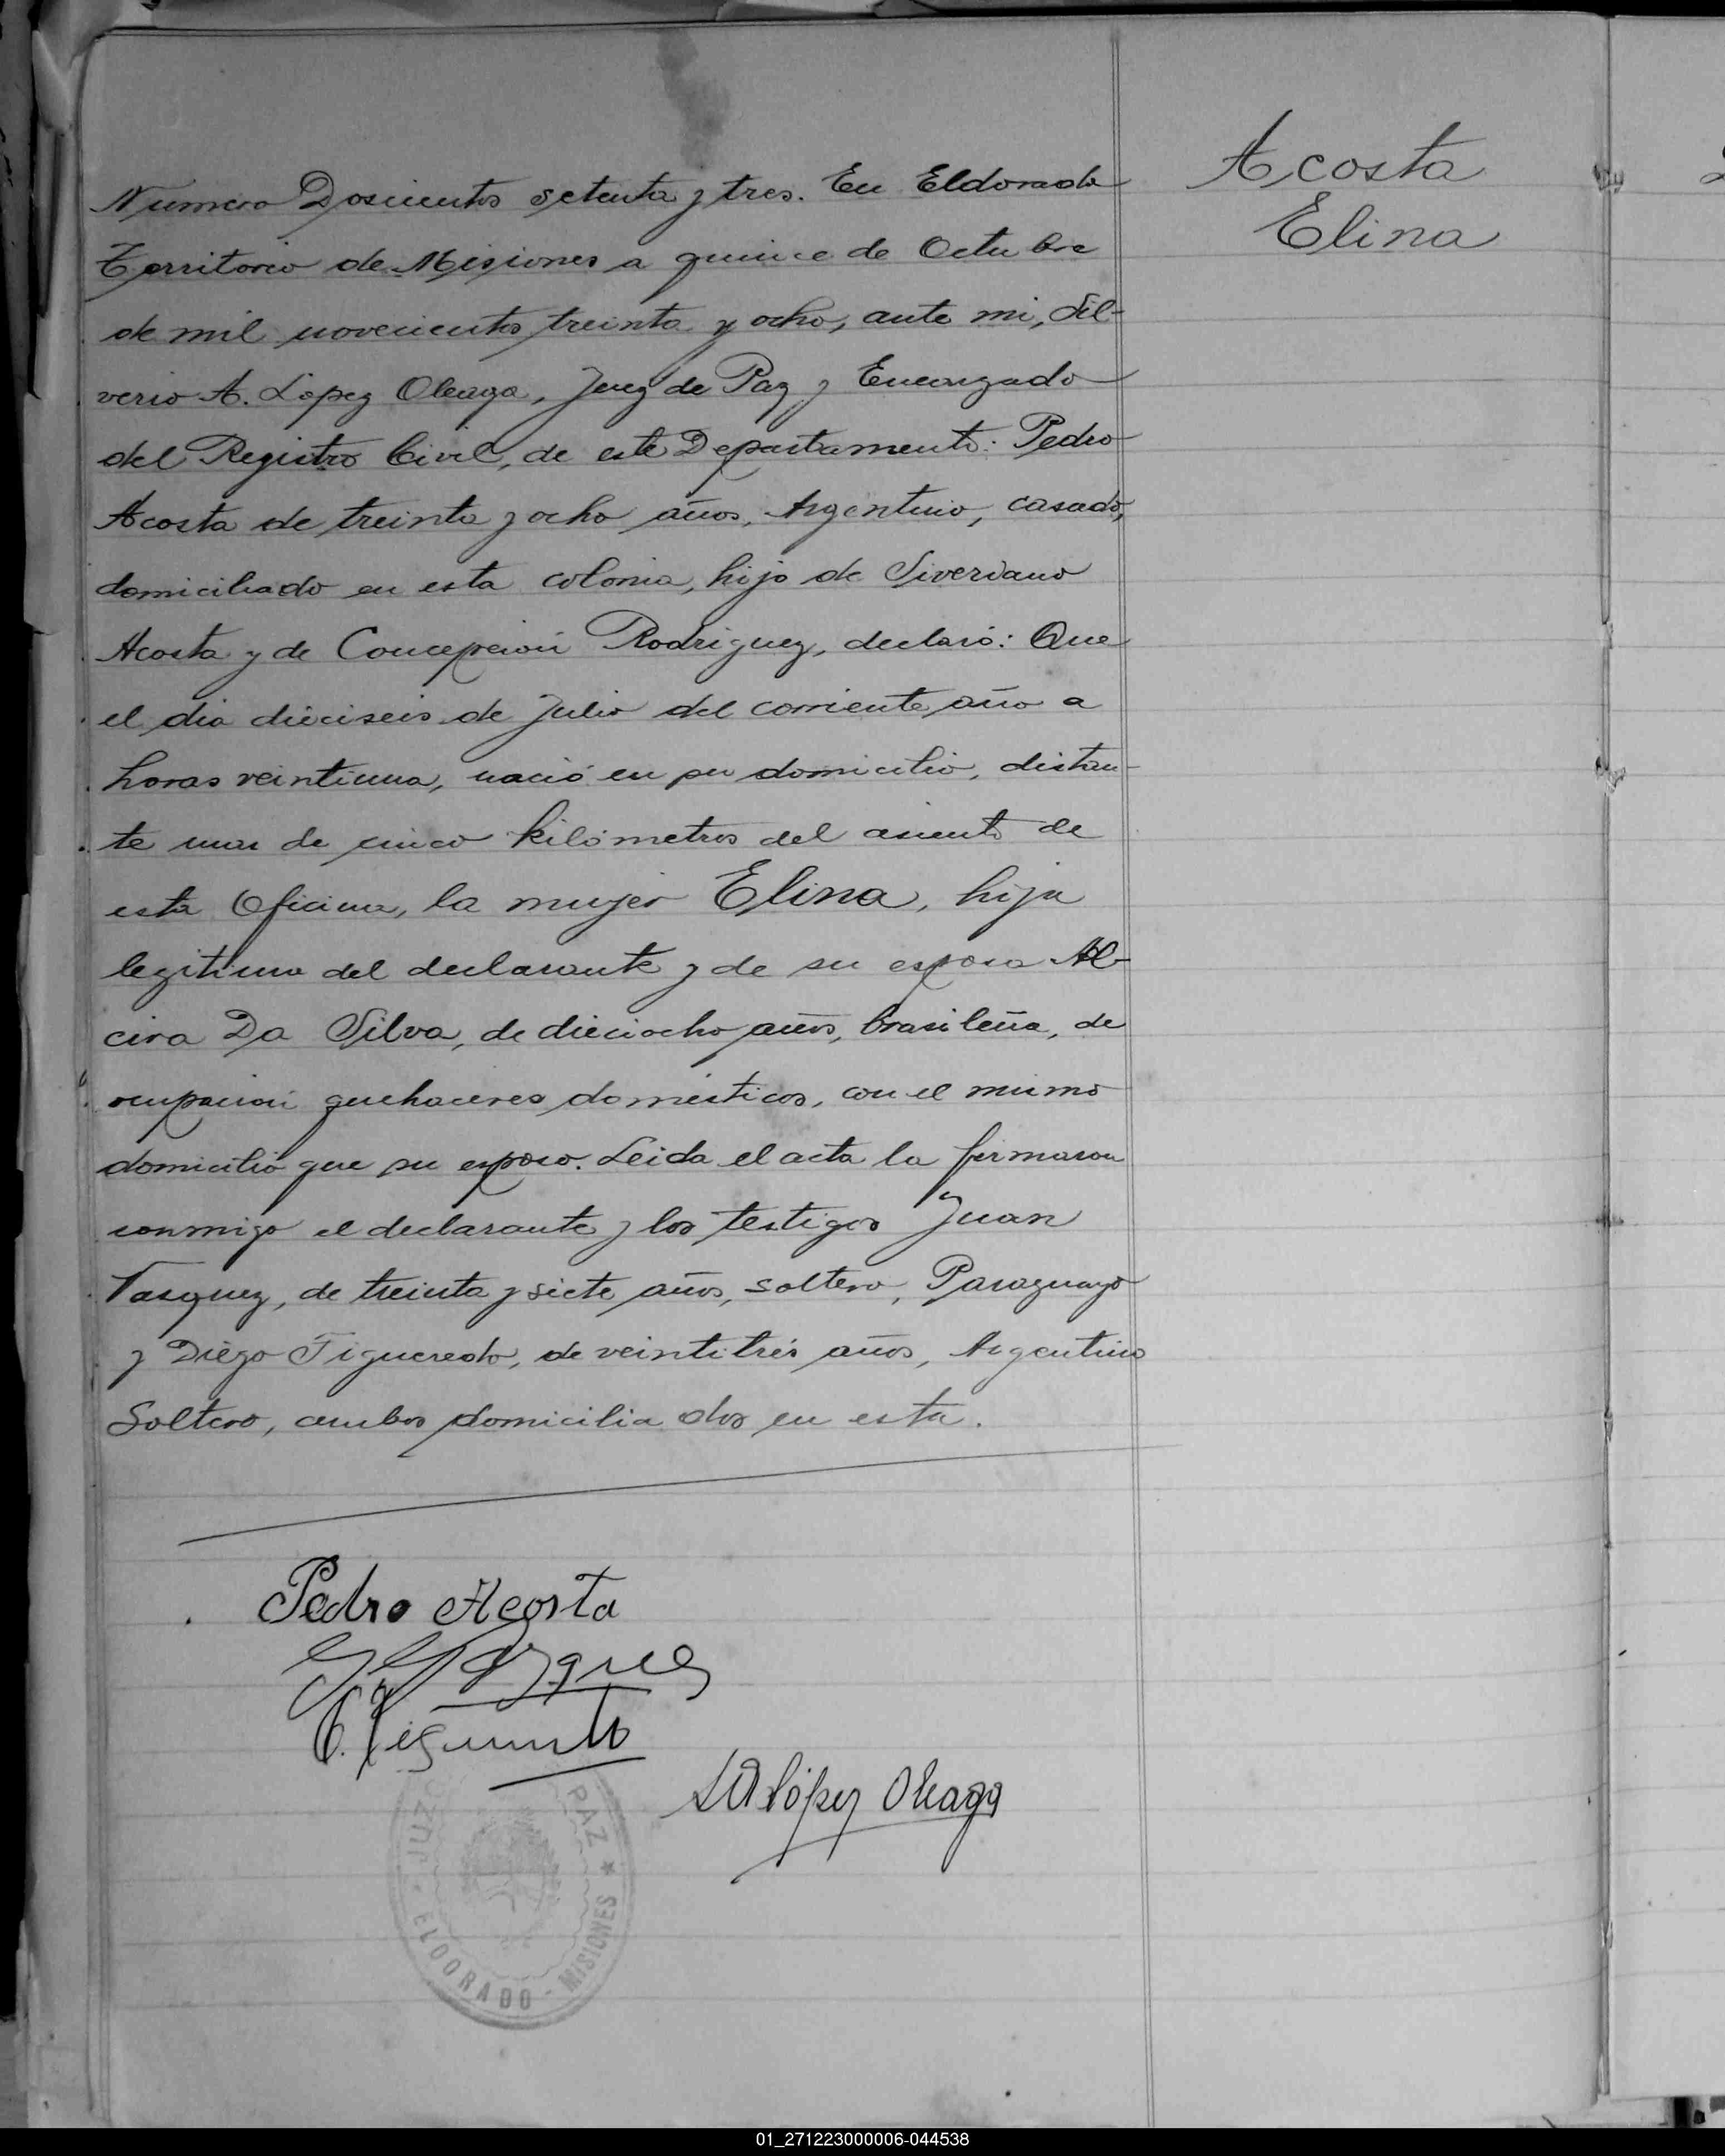 Acosta
Elina
Numero Doscientos setenta y tres. En Eldorado
Territorio de Misiones a quince de Octubre
de mil novecientos treinta y ocho, ante mi, Sil-
verio A. López Oleaga, Juez de Paz y Encargado
del Registro Civil, de este Departamento: Pedro
Acosta de treinta y ocho años, Argentino, casado,
domiciliado en esta colonia, hijo de Siveriano
Acosta y de Concepción Rodriguez, declaró: Que
el dia dieciseis de Julio del corriente año a
horas veintiuna, nació en su domicilio, distan-
te mas de cinco kilómetros del asiento de
esta Oficina, la mujer Elina, hija
legitima del declarante y de su esposa Al-
cira Da Silva, de dieciocho años, brasileña, de
ocupación quehaceres domésticos, con el mismo
domicilio que su esposo. Leida el acta la firmaron
conmigo el declarante y los testigos Juan
Vasquez, de treinta y siete años, soltero, Paraguayo
y Diego Figueredo, de veintitrés años, Argentino
Soltero, ambos domiciliados en esta.
Pedro Acosta
SA López Oleaga
JUZ PAZ ★
ELDORADO - MISIONES
01_271223000006-044538